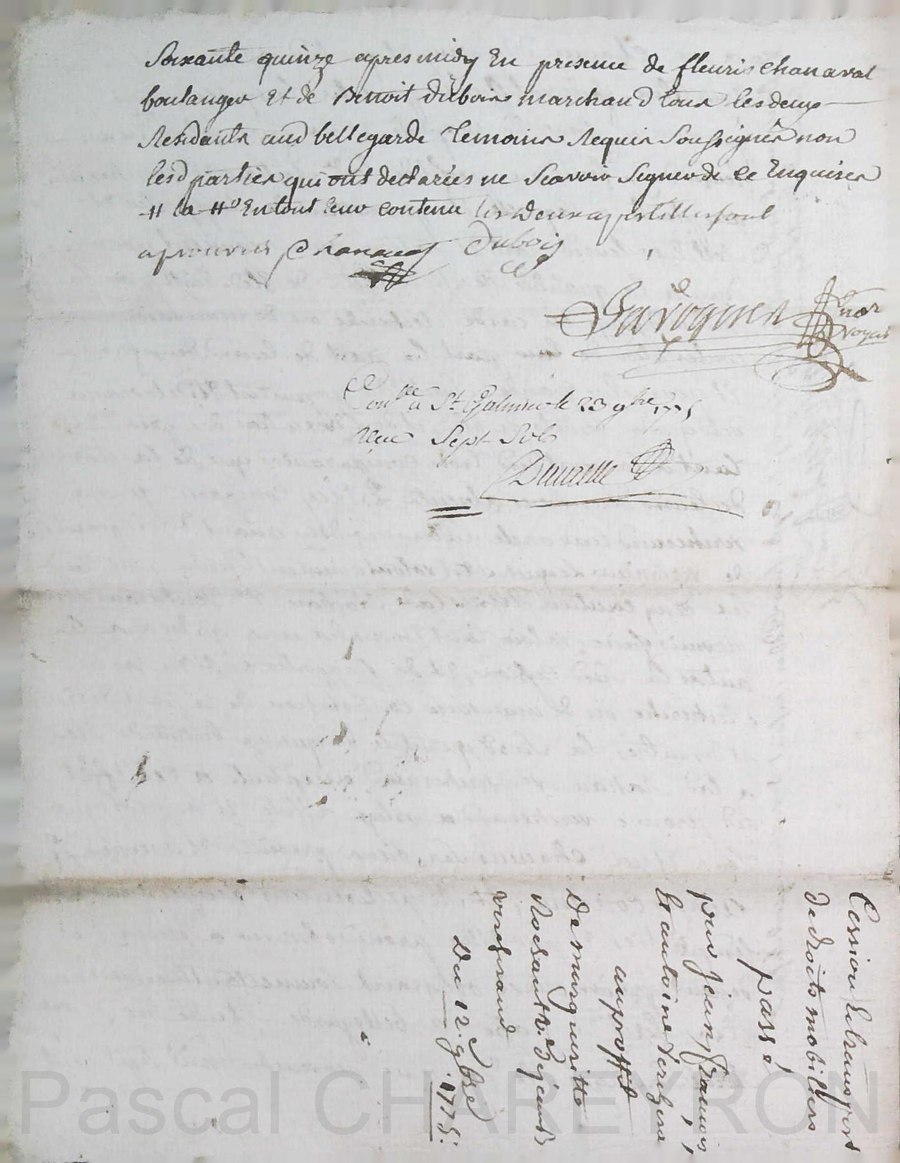 Soixante quinze apres midy En presence de fleuris chanaval
boulanger Et de Benoit dubois marchand tous les deux
Residants aud bellegarde temoins Requis Soussignés non
lesd parties qui ont declarées ne Scavoir Signer de ce Enquises
la Entout leur contenu les deux apostilles sont
aprouvees Chanaval Dubois
nore
royal
Conlle a St Galmier le 23 9bre 1775
Reçu Sept Sols
Cession Et transport
de droits mobiliers
passé
par Jean, françois,
Et antoine
au proffit
De marguerite
verchrand
Du 12 9bre 1775.
Pascal CHAREYRON